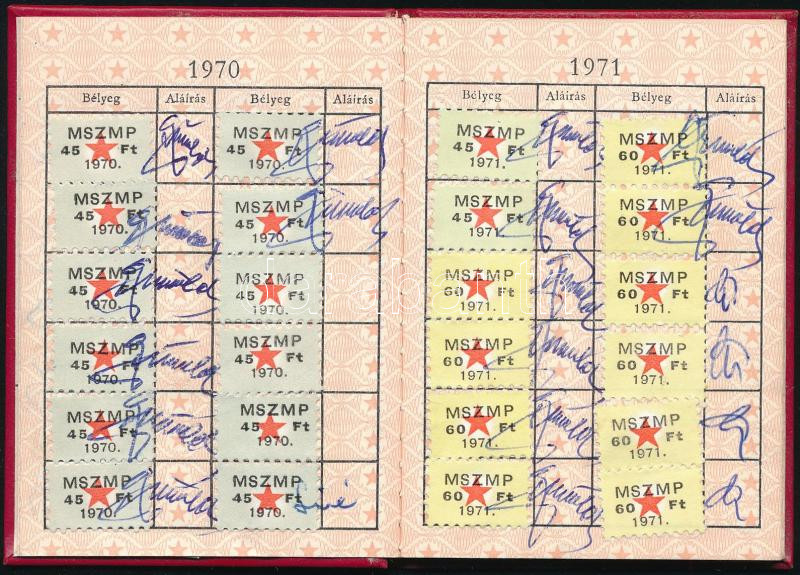 1970
Bélyeg Aláírás Bélyeg Aláírás
MSZMP
45 Ft
1970.
MSZMP
45 Ft
1970.
MSZMP
45 Ft
1970.
MSZMP
45 Ft
1970.
MSZMP
45 Ft
1970.
MSZMP
45 Ft
1970.
MSZMP
45 Ft
1970.
MSZMP
45 Ft
1970.
MSZMP
45 Ft
1970.
MSZMP
45 Ft
1970.
MSZMP
45 Ft
1970.
MSZMP
45 Ft
1970.
1971
Bélyeg Aláírás Bélyeg Aláírás
MSZMP
45 Ft
1971.
MSZMP
60 Ft
1971.
MSZMP
45 Ft
1971.
MSZMP
60 Ft
1971.
MSZMP
60 Ft
1971.
MSZMP
60 Ft
1971.
MSZMP
60 Ft
1971.
MSZMP
60 Ft
1971.
MSZMP
60 Ft
1971.
MSZMP
60 Ft
1971.
MSZMP
60 Ft
1971.
MSZMP
60 Ft
1971.